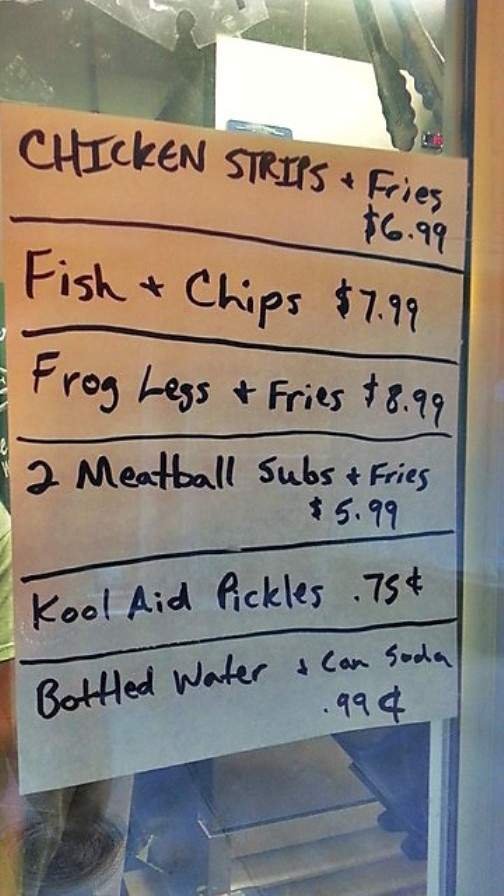 CHICKEN STRIPS + Fries
$6.99
Fish + Chips $7.99
Frog Legs + Fries $8.99
2 Meatball Subs + Fries
$5.99
Kool Aid Pickles .75¢
Bottled Water + Can Soda
.99¢